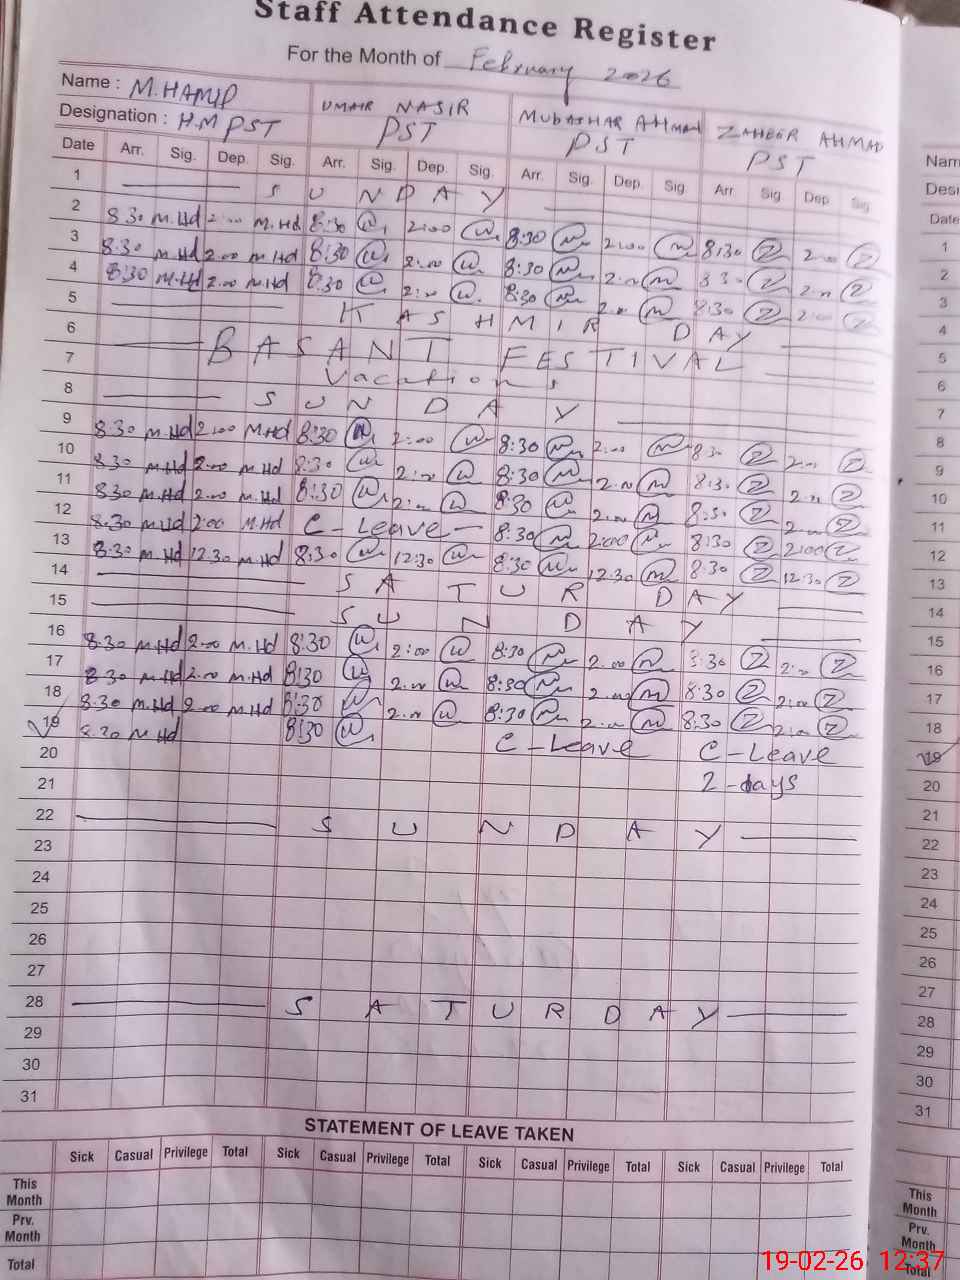 Staff Attendance Register
For the Month of February 2026
Name : M.HAMID UMAIR NASIR MUBASHAR AHMAD ZAHEER AHMAD
Designation : H.M PST PST PST PST
Date Arr. Sig. Dep. Sig. Arr. Sig. Dep. Sig. Arr. Sig. Dep. Sig. Arr. Sig Dep Sig.
1 SUNDAY
2 8.30 M.Hd 2.00 M.Hd 8:30 2:00 8:30 2:00 8:30 2:00
3 8.30 M.Hd 2.00 M.Hd 8:30 2:00 8:30 2:00 8:30 2:00
4 8:30 M.Hd 2.00 M.Hd 8:30 2:00 8:30 2:00 8:30 2:00
5 KASHMIR DAY
6 BASANT FESTIVAL
7 Vacations
8 SUNDAY
9 8.30 M.Hd 2.00 M.Hd 8:30 2:00 8:30 2:00 8:30 2:00
10 8.30 M.Hd 2.00 M.Hd 8:30 2:00 8:30 2:00 8:30 2:00
11 8.30 M.Hd 2.00 M.Hd 8:30 2:00 8:30 2:00 8:30 2:00
12 8.30 M.Hd 2:00 M.Hd C-Leave 8:30 2:00 8:30 2:00
13 8:30 M.Hd 12.30 M.Hd 8:30 12:30 8:30 12:30 8:30 12:30
14 SATURDAY
15 SUNDAY
16 8.30 M.Hd 2.00 M.Hd 8:30 2:00 8:30 2:00 8:30 2:00
17 8.30 M.Hd 2.00 M.Hd 8:30 2:00 8:30 2:00 8:30 2:00
18 8.30 M.Hd 2.00 M.Hd 8:30 2:00 8:30 2:00 8:30 2:00
19 8.30 M.Hd 8:30 C-Leave C-Leave
20 2-days
21
22 SUNDAY
23
24
25
26
27
28 SATURDAY
29
30
31
STATEMENT OF LEAVE TAKEN
Sick Casual Privilege Total Sick Casual Privilege Total Sick Casual Privilege Total Sick Casual Privilege Total
This Month
Prv. Month
Total
Nam
Desi
Date
1
2
3
4
5
6
7
8
9
10
11
12
13
14
15
16
17
18
19
20
21
22
23
24
25
26
27
28
29
30
31
This Month
Prv. Month
Total
19-02-26 12:37